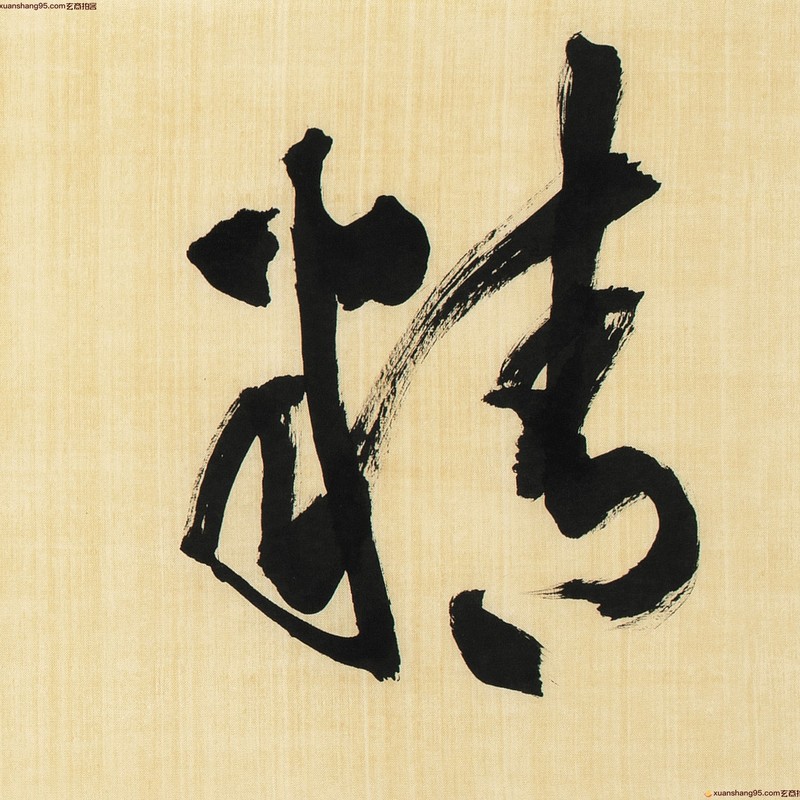 xuanshang95.com玄商拍客
精
xuanshang95.com玄商拍